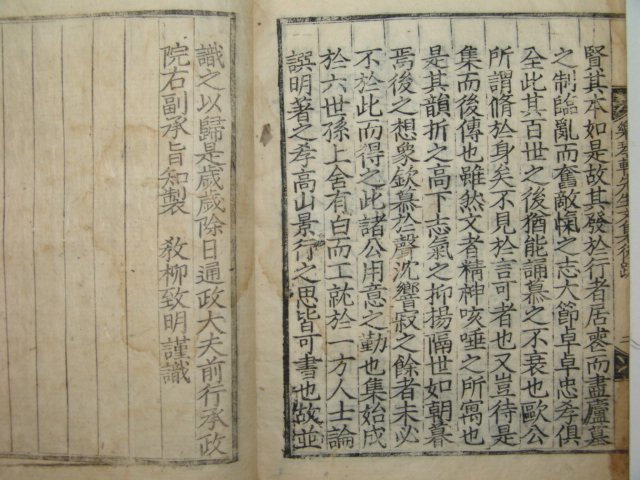 賢其本如是故其發於行者居喪而盡廬墓
之制臨亂而奮敵愾之志大節卓卓忠孝俱
全此其百世之後猶能誦慕之不衰也歐公
所謂脩於身矣不見於言可者也又豈待是
集而後傳也雖然文者精神咳唾之所寓也
是其韻折之高下志氣之抑揚隔世如朝暮
焉後之想象欽慕於聲沈響寂之餘者未必
不於此而得之此諸公用意之勤也集始成
於六世孫上舍有白而工訖於一方人士論
譔明著之孝高山景行之思皆可書也故並
識之以歸是歲歲除日通政大夫前行承政
院右副承旨知製 敎柳致明謹識
軒先生文集後跋
二